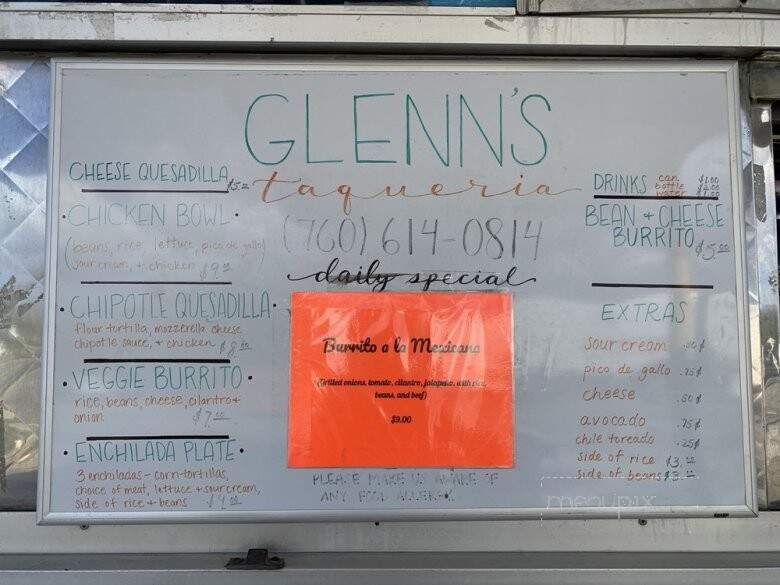 GLENN'S
taqueria
(760) 614-0814
daily special
CHEESE QUESADILLA $5.00
• CHICKEN BOWL •
(beans, rice, lettuce, pico de gallo,
sour cream, + chicken $9.00
• CHIPOTLE QUESADILLA •
flour tortilla, mozzerella cheese
chipotle sauce, + chicken $8.00
• VEGGIE BURRITO •
rice, beans, cheese, cilantro +
onion $7.00
• ENCHILADA PLATE •
3 enchiladas - corn-tortillas,
choice of meat, lettuce + sour cream,
side of rice + beans
Burrito a la Mexicana
(Grilled onions, tomato, cilantro, jalapeño, with rice,
beans, and beef)
$9.00
PLEASE MAKE US AWARE OF
ANY FOOD ALLERGY.
DRINKS can $1.00
bottle $2.00
water $1.00
BEAN + CHEESE
BURRITO $5.00
EXTRAS
sour cream .50¢
pico de gallo .75¢
cheese .50¢
avocado .75¢
chile toreado .25¢
side of rice $3.00
side of beans $3.00
menupix